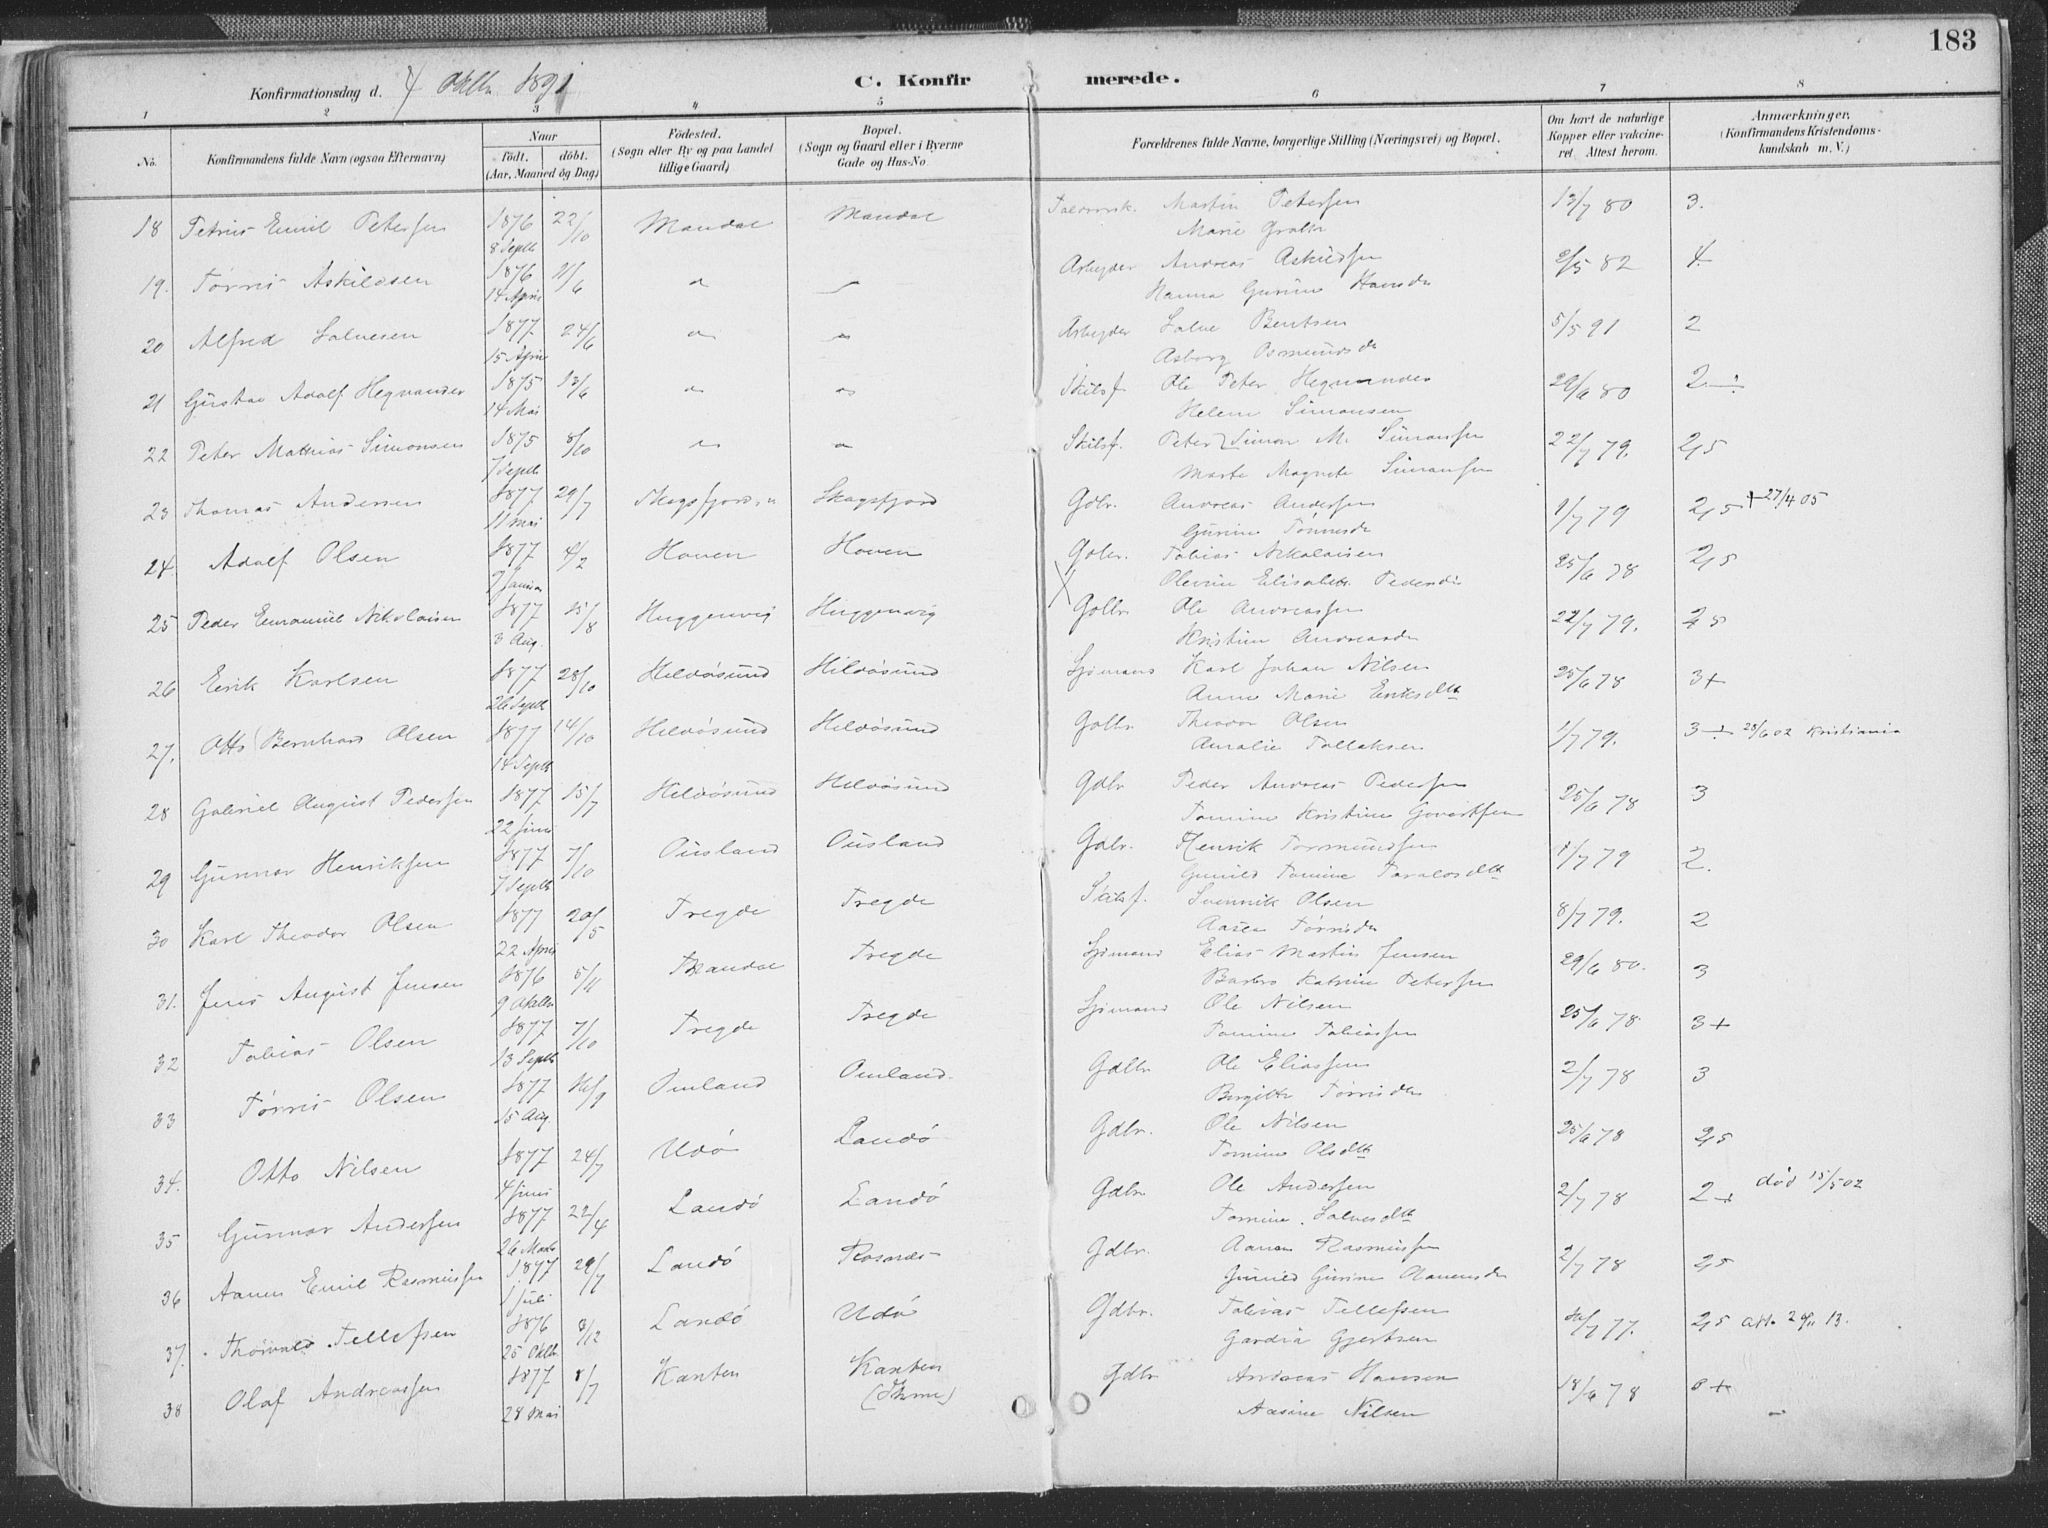 183
C. Konfirmerede.
Konfirmationsdag d. 4 Oktbr 1891
1 2 3 4 5 6 7 8
No. Konfirmandens fulde Navn (ogsaa Efternavn) Naar födt. döbt. (Aar, Maaned og Dag) Födested. (Sogn eller By og paa Landet tillige Gaard) Bopæl. (Sogn og Gaard eller i Byerne Gade og Hus-No. Forældrenes fulde Navne, borgerlige Stilling (Næringsvei) og Bopæl. Om havt de naturlige Kopper eller vakcineret. Attest herom. Anmærkninger. (Konfirmandens Kristendomskundskab m. V.)
18 Petrus Emil Petersen 1876 8 Septb 22/10 Mandal Mandal Martin Petersen Marie 13/7 80 3.
19. Tørris Askildsen 1876 14 April 11/6 Arbeyder Andreas Askildsen Hanna Gurine Hansdr 2/5 82 4.
20 Alfred Salvesen 1877 15 April 24/6 Arbeyder Salve Bentsen Asborg Osmundsdr 5/5 91 2
21 Gustav Adolf Hegnander 1875 14 Mai 13/6 Skibsf. Ole Peter Hegnander Helene Simonsen 29/6 80 2 ÷
22 Peter Mathias Simonsen 1875 7 Septb 8/10 Skibsf. Peter Simon M. Simonsen Marte Magrete Simonsen 22/7 79. 2,5
23 Thomas Andersen 1877 11 Mai 29/7 Skogsfjord Skogsfjord Gdbr. Andreas Andersen Gurine Tønnesdr 1/7 79 2,5 + 27/4 05
24. Adolf Olsen 1877 9 Januar 4/2 Hoven Hoven Gdbr. Tobias Nikolaisen Olevine Elisabeth Pedersdr 25/6 78 2,5
25 Peder Emanuel Nikolaisen 1877 3 Aug. 15/8 Huggenvig Huggenvig Gdbr. Ole Andreassen Kristine Andreasdr 22/7 79. 2,5
26 Eerik Karlsen 1877 26 Septb 28/10 Hildøsund Hildøsund Sjømand Karl Johan Nilsen Anne Marie Eriksdtt 25/6 78 3+
27. Otto Bernhard Olsen 1877 14 Septb 14/10 Hildøsund Hildøsund Gdbr. Theodor Olsen Amalie Tollaksen 1/7 79. 3 ÷ 28/6 02 Kristiania
28 Gabriel August Pedersen 1877 22 Juni 15/7 Hildøsund Hildøsund Gdbr Peder Andreas Pedersen Tomine Kristine 25/6 78 3
29 Gunnar Henriksen 1877 7 Septb 7/10 Ousland Ousland Gdbr. Henrik Tormundsen Gunild Tomine Taraldsdtt 1/7 79 2.
30 Karl Theodor Olsen 1877 22 April 20/5 Tregde Tregde Skibsf. Svennik Olsen Aasea Tørrisdr 8/7 79. 2
31. Jens August Jensen 1876 9 Oktbr 5/11 Mandal Tregde Sjømand Elias Martin Jensen Barbro Katrine Petersen 29/6 80. 3
32 Tobias Olsen 1877 13 Septb 7/10 Tregde Tregde Sjømand Ole Nilsen Tomine Tobiassen 25/6 78 3+
33 Tørris Olsen 1877 15 Aug. 16/9 Omland Omland Gdbr Ole Eliassen Birgitte Tørrisdtr 2/7 78 3
34. Otto Nilsen 1877 4 Juni 24/7 Udø Landø Gdbr. Ole Nilsen Tomine Olsdtt 25/6 78 2,5
35 Gunnar Andersen 1877 26 Marts 22/4 Landø Landø Gdbr. Ole Andersen Tomine Salvesdtt 2/7 78 2+ død 15/5 02
36 Aanen Emil Rasmussen 1877 1 Juli 29/7 Landø Rosnæs Gdbr. Aanen Rasmussen Gunild Gurine 2/7 78 2,5
37. Thorvald Tellefsen 1876 25 Oktb. 3/12 Landø Udø Gdbr. Tobias Tellefsen Gardia Gjertsen 10/7 77. 2,5 att. 29/11 13.
38 Olaf Andreassen 1877 28 Mai 8/7 Kanten Kanten Gdbr Andreas Hansen Aasine Nilsen 18/6 78